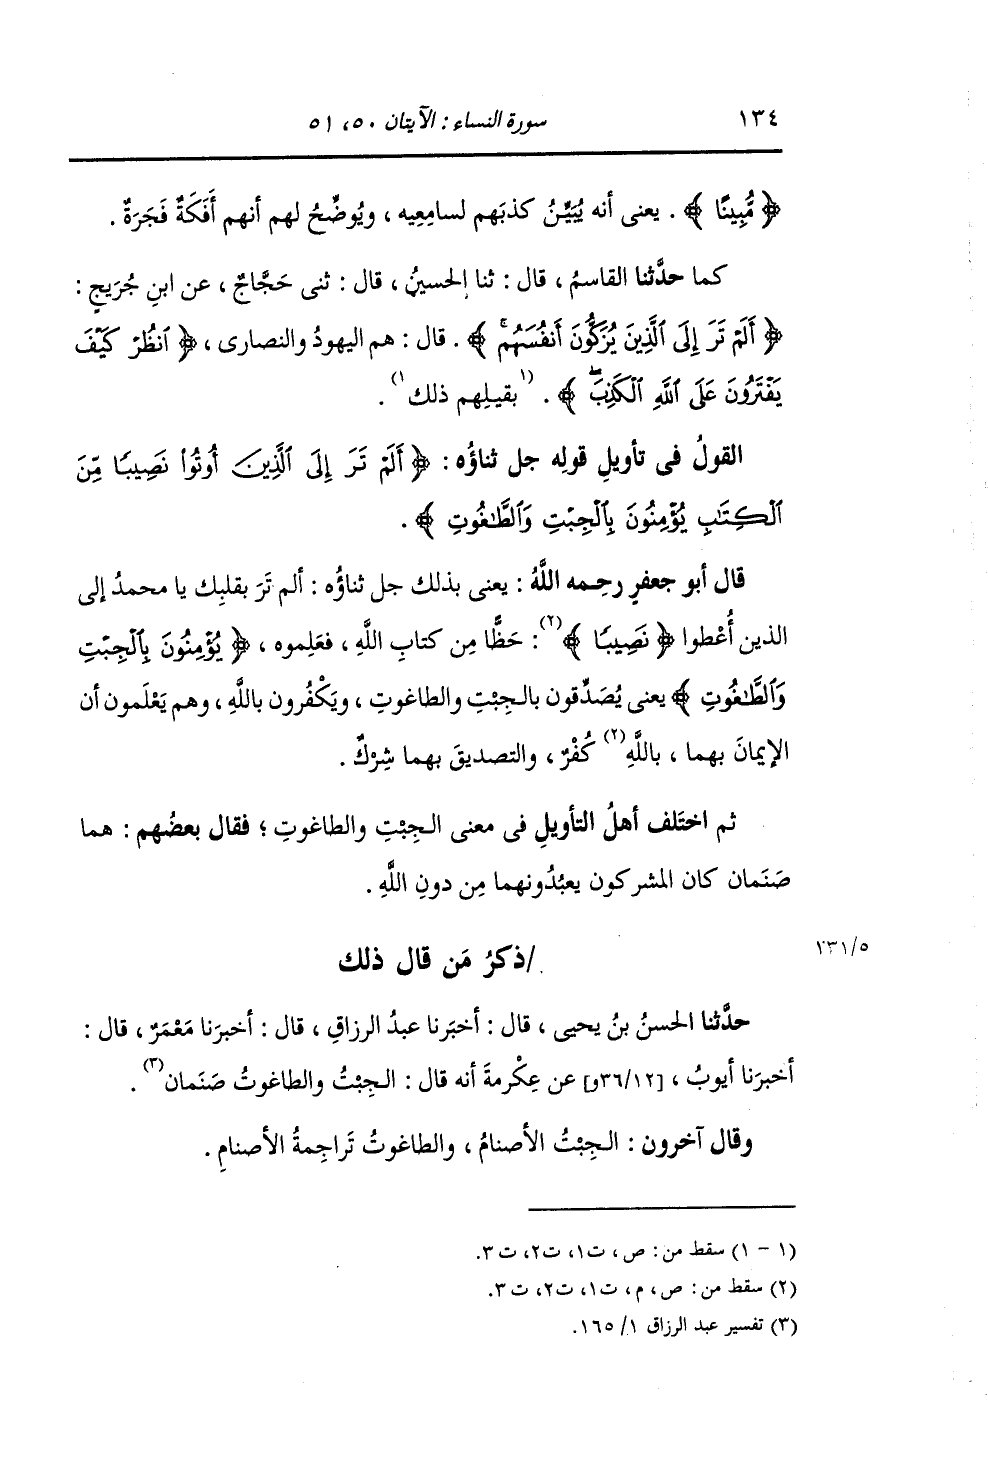 ١٣٤ سورة النساء : الآيتان ٥٠، ٥١
﴿ مُّبِينًا ﴾ . يعنى أنه يُبَيِّنُ كذبَهم لسامِعِيه ، ويُوضِّحُ لهم أنهم أَفَكَةٌ فَجَرَةٌ .
كما حدَّثنا القاسمُ ، قال : ثنا الحسينُ ، قال : ثنى حَجَّاجٌ ، عن ابنِ جُرَيجٍ :
﴿ أَلَمْ تَرَ إِلَى ٱلَّذِينَ يُزَكُّونَ أَنفُسَهُمْ ﴾ . قال : هم اليهودُ والنصارى ، ﴿ ٱنظُرْ كَيْفَ
يَفْتَرُونَ عَلَى ٱللَّهِ ٱلْكَذِبَ ﴾ . (١ بقيلِهم ذلك ١) .
القولُ فى تأويلِ قولِه جل ثناؤُه : ﴿ أَلَمْ تَرَ إِلَى ٱلَّذِينَ أُوتُوا۟ نَصِيبًا مِّنَ
ٱلْكِتَٰبِ يُؤْمِنُونَ بِٱلْجِبْتِ وَٱلطَّٰغُوتِ ﴾ .
قال أبو جعفرٍ رحِمه اللَّهُ : يعنى بذلك جل ثناؤُه : ألم تَرَ بقلبِك يا محمدُ إلى
الذين أُعْطوا ﴿ نَصِيبًا ﴾(٢) : حَظًّا مِن كتابِ اللَّهِ ، فعَلِموه ، ﴿ يُؤْمِنُونَ بِٱلْجِبْتِ
وَٱلطَّٰغُوتِ ﴾ يعنى يُصَدِّقون بالجِبْتِ والطاغوتِ ، ويَكْفُرون باللَّهِ ، وهم يَعْلَمون أن
الإيمانَ بهما ، باللَّهِ(٢) كُفْرٌ ، والتصديقَ بهما شِرْكٌ .
ثم اختَلف أهلُ التأويلِ فى معنى الجِبْتِ والطاغوتِ ؛ فقال بعضُهم : هما
صَنَمان كان المشركون يعبُدُونهما مِن دونِ اللَّهِ .
/ذكرُ مَن قال ذلك ٢٣١/٥
حدَّثنا الحسنُ بنُ يحيى ، قال : أخبَرنا عبدُ الرزاقِ ، قال : أخبرَنا مَعْمَرٌ ، قال :
أخبرَنا أيوبُ ، [٣٦/١٢و] عن عِكْرمةَ أنه قال : الجِبْتُ والطاغوتُ صَنَمان(٣) .
وقال آخرون : الجِبْتُ الأصنامُ ، والطاغوتُ تَراجِمةُ الأصنامِ .
(١ - ١) سقط من : ص ، ت١، ت٢، ت٣.
(٢) سقط من : ص، م، ت١، ت٢، ت٣.
(٣) تفسير عبد الرزاق ١/ ١٦٥.